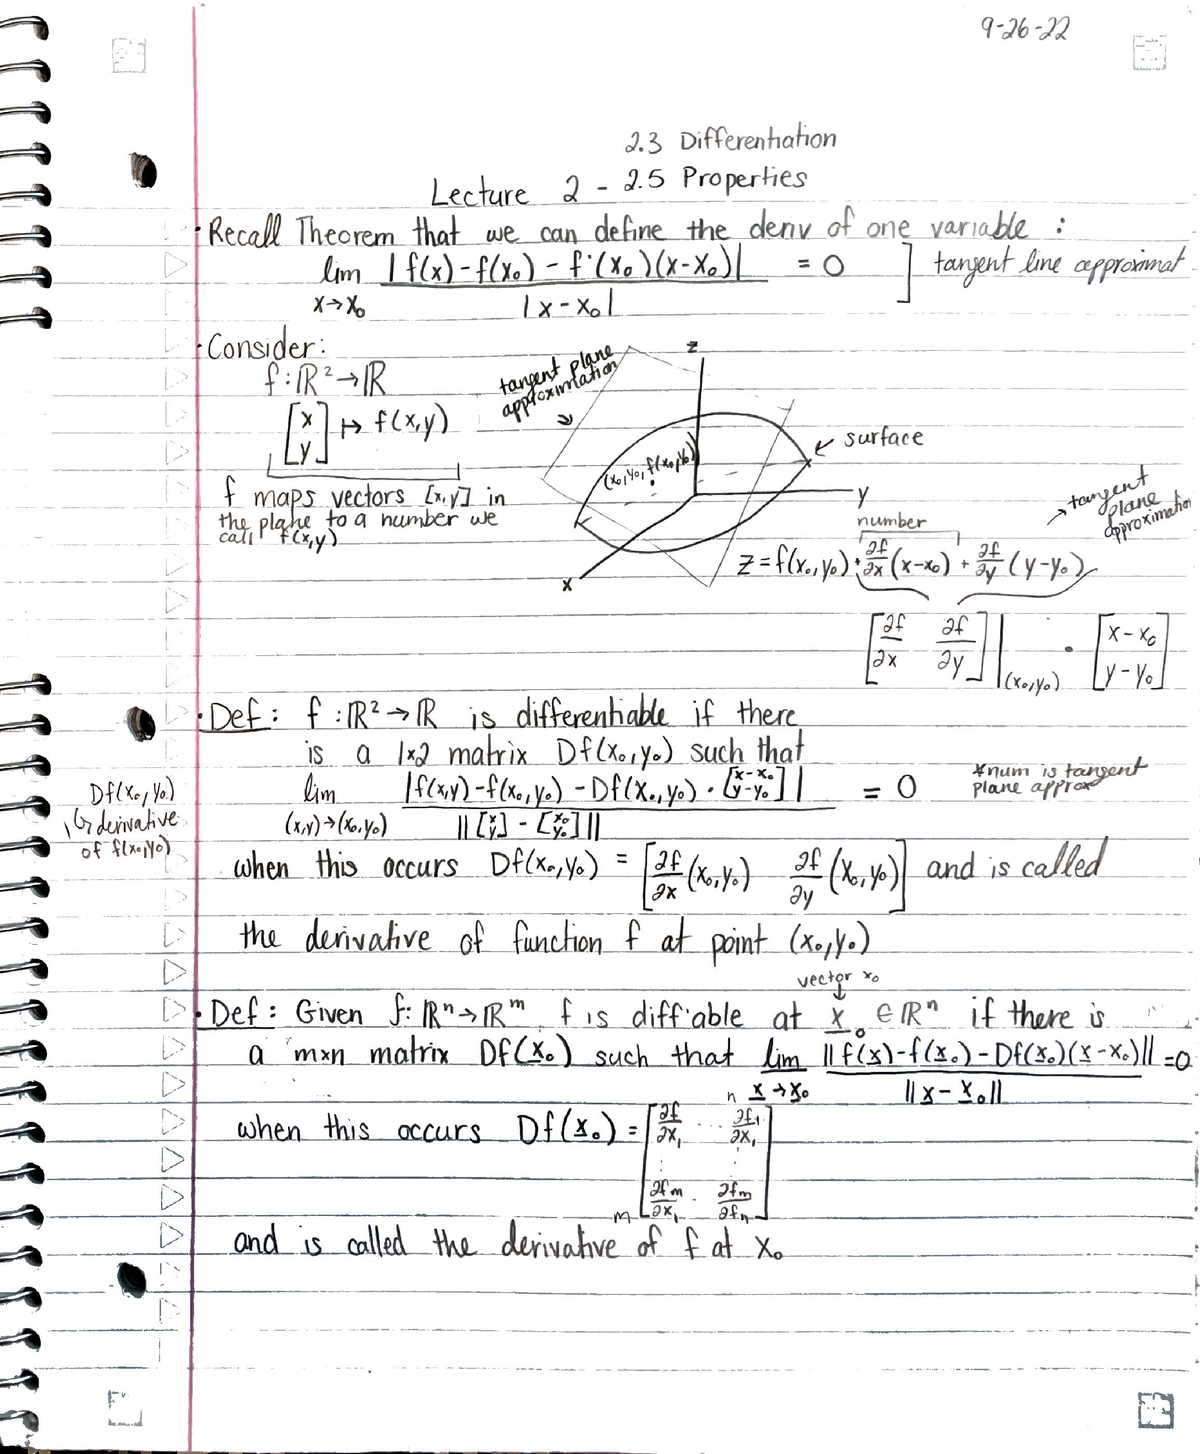 9-26-22
2.3 Differentiation
Lecture 2 - 2.5 Properties
· Recall Theorem that we can define the deriv of one variable :
lim |f(x)-f(x₀) - f'(x₀)(x-x₀)| = 0 ] tangent line approximat
x→x₀ |x-x₀|
· Consider:
f: ℝ² → ℝ
[x y] ↦ f(x,y)
f maps vectors [x,y] in
the plane to a number we
call f(x,y)
tangent plane
approximation
z
(x₀,y₀,f(x₀,y₀))
surface
y
x
number
→ tangent
plane
approximation
z = f(x₀,y₀) + ∂f/∂x (x-x₀) + ∂f/∂y (y-y₀)
[∂f/∂x ∂f/∂y] |(x₀,y₀) · [x-x₀ y-y₀]
· Def: f: ℝ² → ℝ is differentiable if there
is a 1×2 matrix Df(x₀,y₀) such that
lim |f(x,y)-f(x₀,y₀) - Df(x₀,y₀) · [x-x₀ y-y₀]| = 0
(x,y)→(x₀,y₀) ||[x y] - [x₀ y₀]||
*num is tangent
plane approx
Df(x₀,y₀)
↳ derivative
of f(x₀,y₀)
when this occurs Df(x₀,y₀) = [∂f/∂x (x₀,y₀) ∂f/∂y (x₀,y₀)] and is called
the derivative of function f at point (x₀,y₀)
vector x₀
· Def: Given f: ℝⁿ → ℝᵐ f is diff'able at x₀ ∈ ℝⁿ if there is
a m×n matrix Df(x₀) such that lim ||f(x)-f(x₀)-Df(x₀)(x-x₀)|| = 0
x→x₀ ||x-x₀||
n
when this occurs Df(x₀) = [∂f/∂x₁ ... ∂f₁/∂x₁
⋮ ⋮
m ∂fm/∂x₁ . ∂fm/∂fn]
and is called the derivative of f at x₀